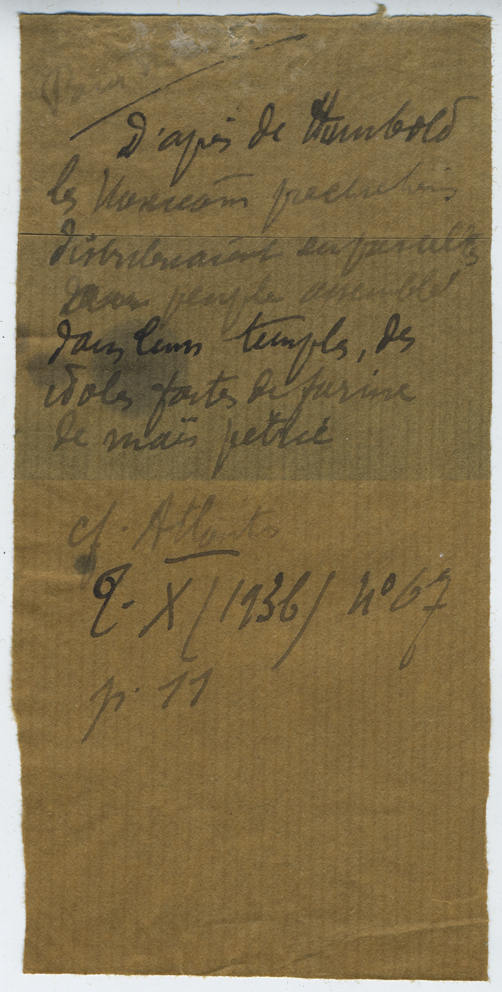 D'après de Humbold
les Mexicains
distribuaient en parcelles
peuple assemblé
dans leurs temples, des
idoles faites de farine
de maïs pétrie
cf. Atlantis
T. X (1936) n° 67
p. 11